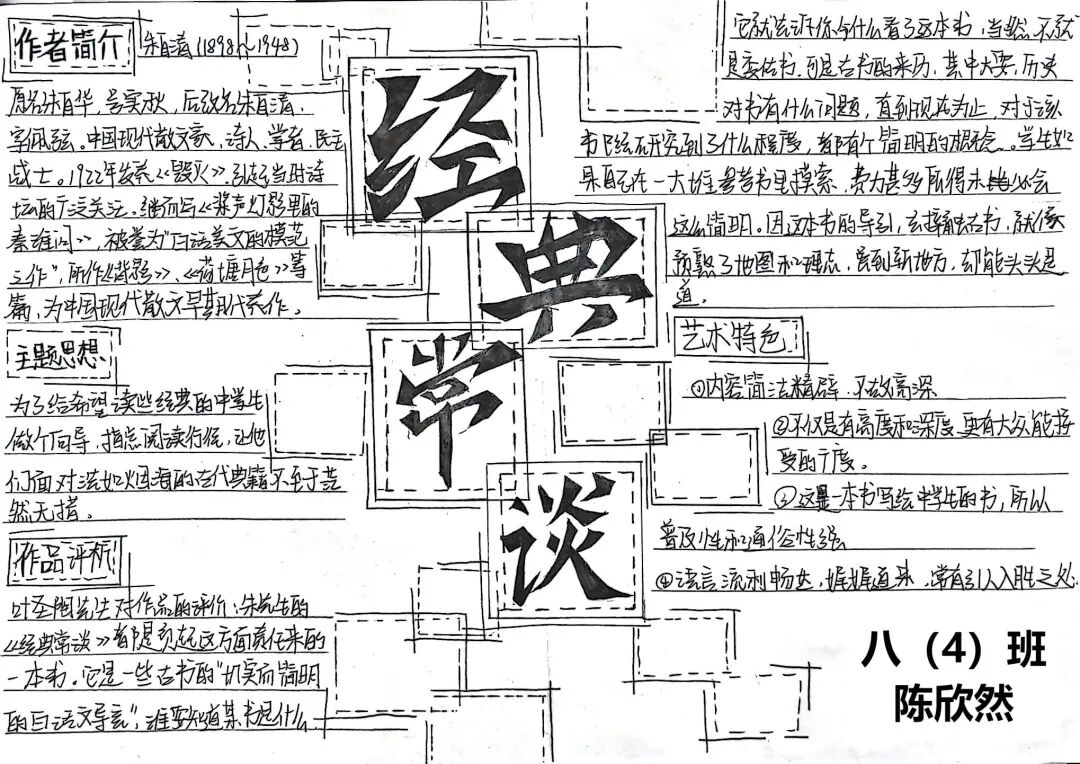 作者简介
朱自清(1898~1948)
原名朱自华,号实秋,后改名朱自清,
字佩弦。中国现代散文家、诗人、学者、民主
战士。1922年发表《毁灭》引起了当时诗
坛的广泛关注,继而写《桨声灯影里的
秦淮河》,被誉为"白话美文的模范
之作",所作《背影》、《荷塘月色》等
篇,为中国现代散文早期代表作。
主题思想
为了给希望读些经典的中学生
做个向导,指点阅读行径,让他
们面对浩如烟海的古代典籍不至于茫
然无措。
作品评析
叶圣陶先生对作品的评价:朱先生的
《经典常谈》都是负起这方面责任来的
一本书。它是一些古书的"切实而简明
的白话文导言",谁要知道某书是什么
经
典
常
谈
它就告诉你
看了这本书,当然不就
是变古书,可是古书的来历,其中大要,历来
对书有什么问题,直到现在为止,对于该
书已经研究到了什么程度,都有个简明的概念。学生如
果自己在一大堆参考书里摸索,费力甚多所得未必会
这么简明。因这本书的导引,去接触古书,就像
预熟了地图和
,来到新地方,却能头头是
道。
艺术特色
①内容简洁精辟,不故高深
②不仅是有高度和深度,更有大众能接
受的广度。
③这是一本书写给中学生的书,所以
普及性和通俗性强
④语言流利畅达,娓娓道来,常有引人入胜之处.
八(4)班
陈欣然